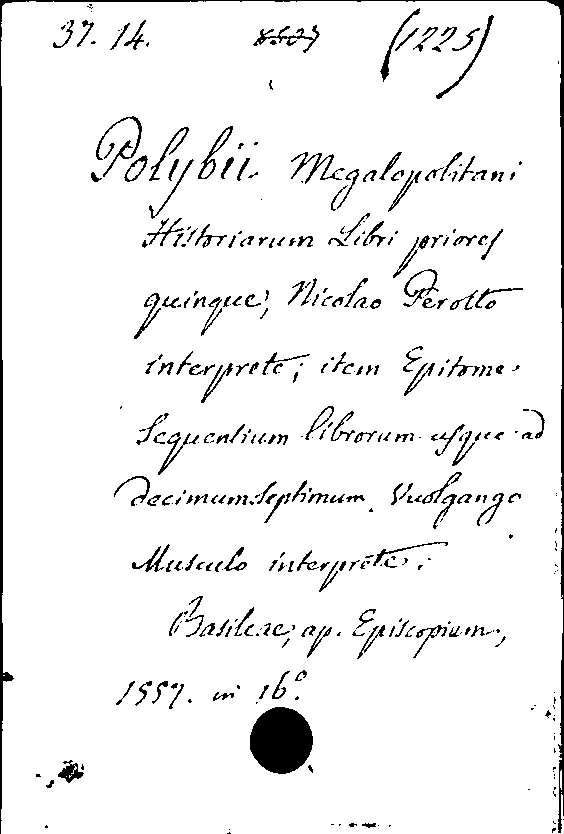 37. 14. (1225)
Polybii Megalopolitani
Historiarum Libri priores
quinque, Nicolao Perotto
interprete; item Epitome
sequentium librorum usque ad
decimumseptimum Vuolgango
Musculo interprete.
Basileae, ap. Episcopium,
1557. in 16º.